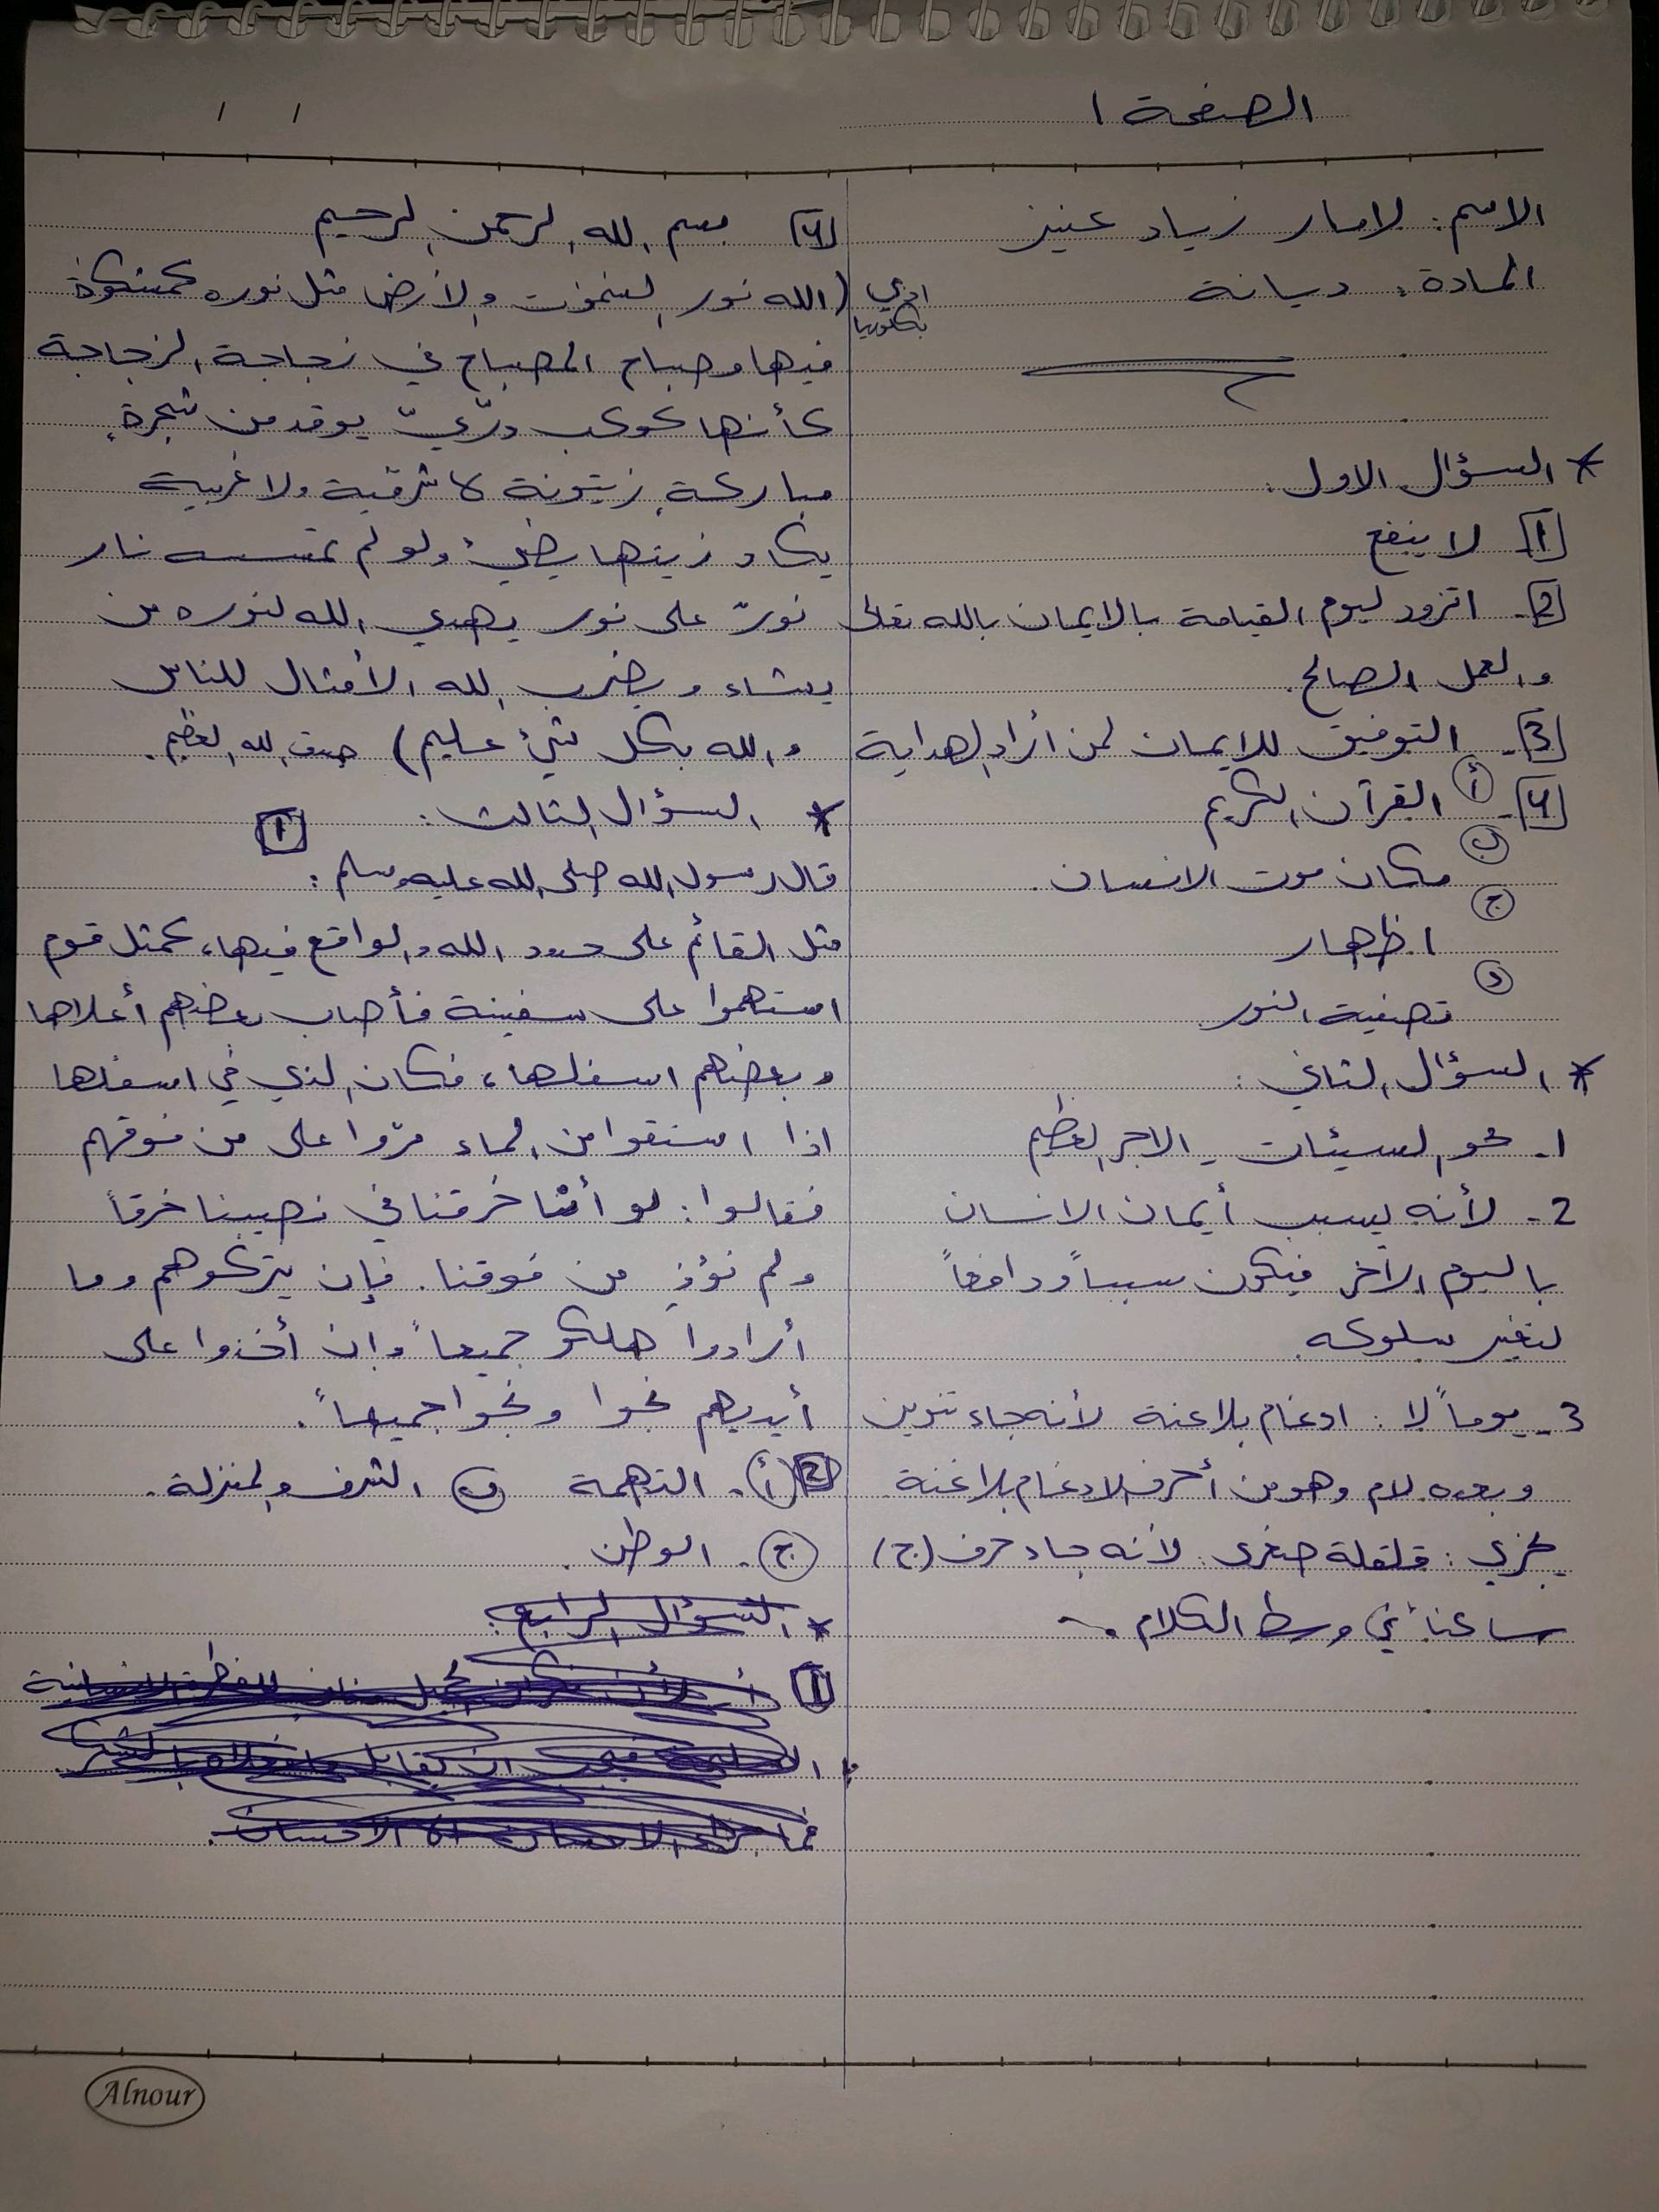 الصفحة ١
الاسم: لامار زياد عنيز
المادة: ديانة
* السؤال الاول:
1 لا ينفع
2- اتزود ليوم القيامة بالايمان بالله تعالى
والعمل الصالح.
3- التوفيق للايمان لمن أراد الهداية
4- أ القرآن الكريم
ب مكان موت الانسان.
ج اظهار
د تصفية النور
* السؤال الثاني:
1- محو السيئات - الاجر العظيم
2- لأنه بسبب أيمان الانسان
باليوم الآخر فيكون سبباً ودافعاً
لتغير سلوكه.
3- يوماً لا: ادغام بلا غنة لأنه جاء تنوين
وبعده لام وهو من أحرف الادغام بلا غنة
يجزي: قلقلة صغرى: لأنه جاء حرف (ج)
ساكناً في وسط الكلام.
4 بسم الله الرحمن الرحيم
(الله نور السموٰت والأرض مثل نوره كمشكوٰة
فيها مصباح المصباح في زجاجة الزجاجة
كأنها كوكب درّيّ يوقد من شجرةٍ
مباركة زيتونة لا شرقية ولا غربية
يكاد زيتها يضيء ولو لم تمسسه نار
نورٌ على نور يهدي الله لنوره من
يشاء ويضرب الله الأمثال للناس
والله بكل شيء عليم) صدق الله العظيم.
* السؤال الثالث:
1
قال رسول الله صلى الله عليه وسلم:
مثل القائم على حدود الله والواقع فيها، كمثل قوم
استهموا على سفينة فأصاب بعضهم أعلاها
وبعضهم اسفلها، فكان الذي في اسفلها
اذا استقوا من الماء مرّوا على من فوقهم
فقالوا: لو أننا خرقنا في نصيبنا خرقاً
ولم نؤذِ من فوقنا. فإن يتركوهم وما
أرادوا هلكو جميعاً وإن أخذوا على
أيديهم نجوا ونجوا جميعاً.
2 أ- التهمة ب الشرف والمنزلة.
ج- الوطن.
* السؤال الرابع:
1
Alnour